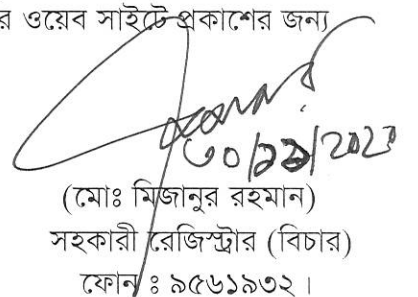 র ওয়েব সাইটে প্রকাশের জন্য
৩০/১১/202
(মোঃ মিজানুর রহমান)
সহকারী রেজিস্ট্রার (বিচার)
ফোন ঃ ৯৫৬১৯৩২।